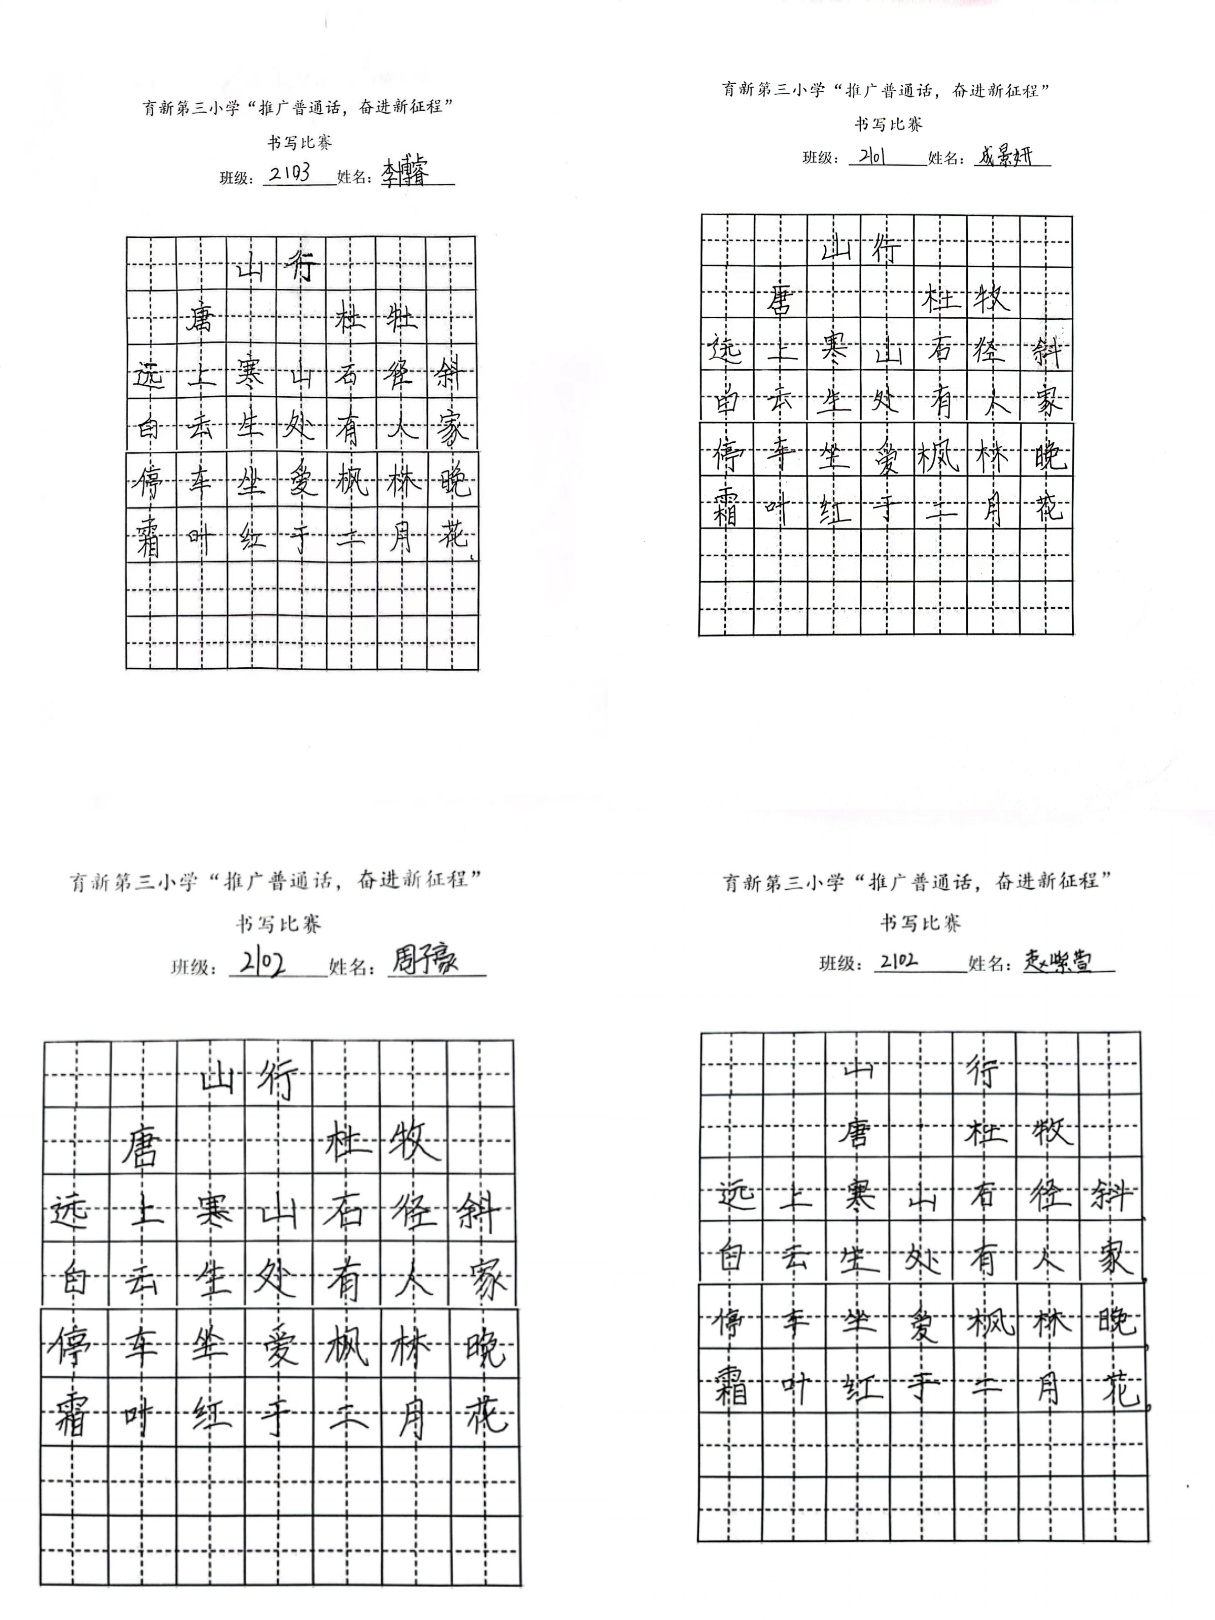 育新第三小学“推广普通话，奋进新征程”
书写比赛
班级：2103 姓名：李博睿
山行
唐 杜牡
远上寒山石径斜
白云生处有人家
停车坐爱枫林晚
霜叶红于二月花
育新第三小学“推广普通话，奋进新征程”
书写比赛
班级：2101 姓名：成景妍
山行
唐 杜牧
远上寒山石径斜
白云生处有人家
停车坐爱枫林晚
霜叶红于二月花
育新第三小学“推广普通话，奋进新征程”
书写比赛
班级：2102 姓名：周子豪
山行
唐 杜牧
远上寒山石径斜
白云生处有人家
停车坐爱枫林晚
霜叶红于二月花
育新第三小学“推广普通话，奋进新征程”
书写比赛
班级：2102 姓名：赵紫萱
山 行
唐 杜牧
远上寒山石径斜，
白云生处有人家，
停车坐爱枫林晚，
霜叶红于二月花。